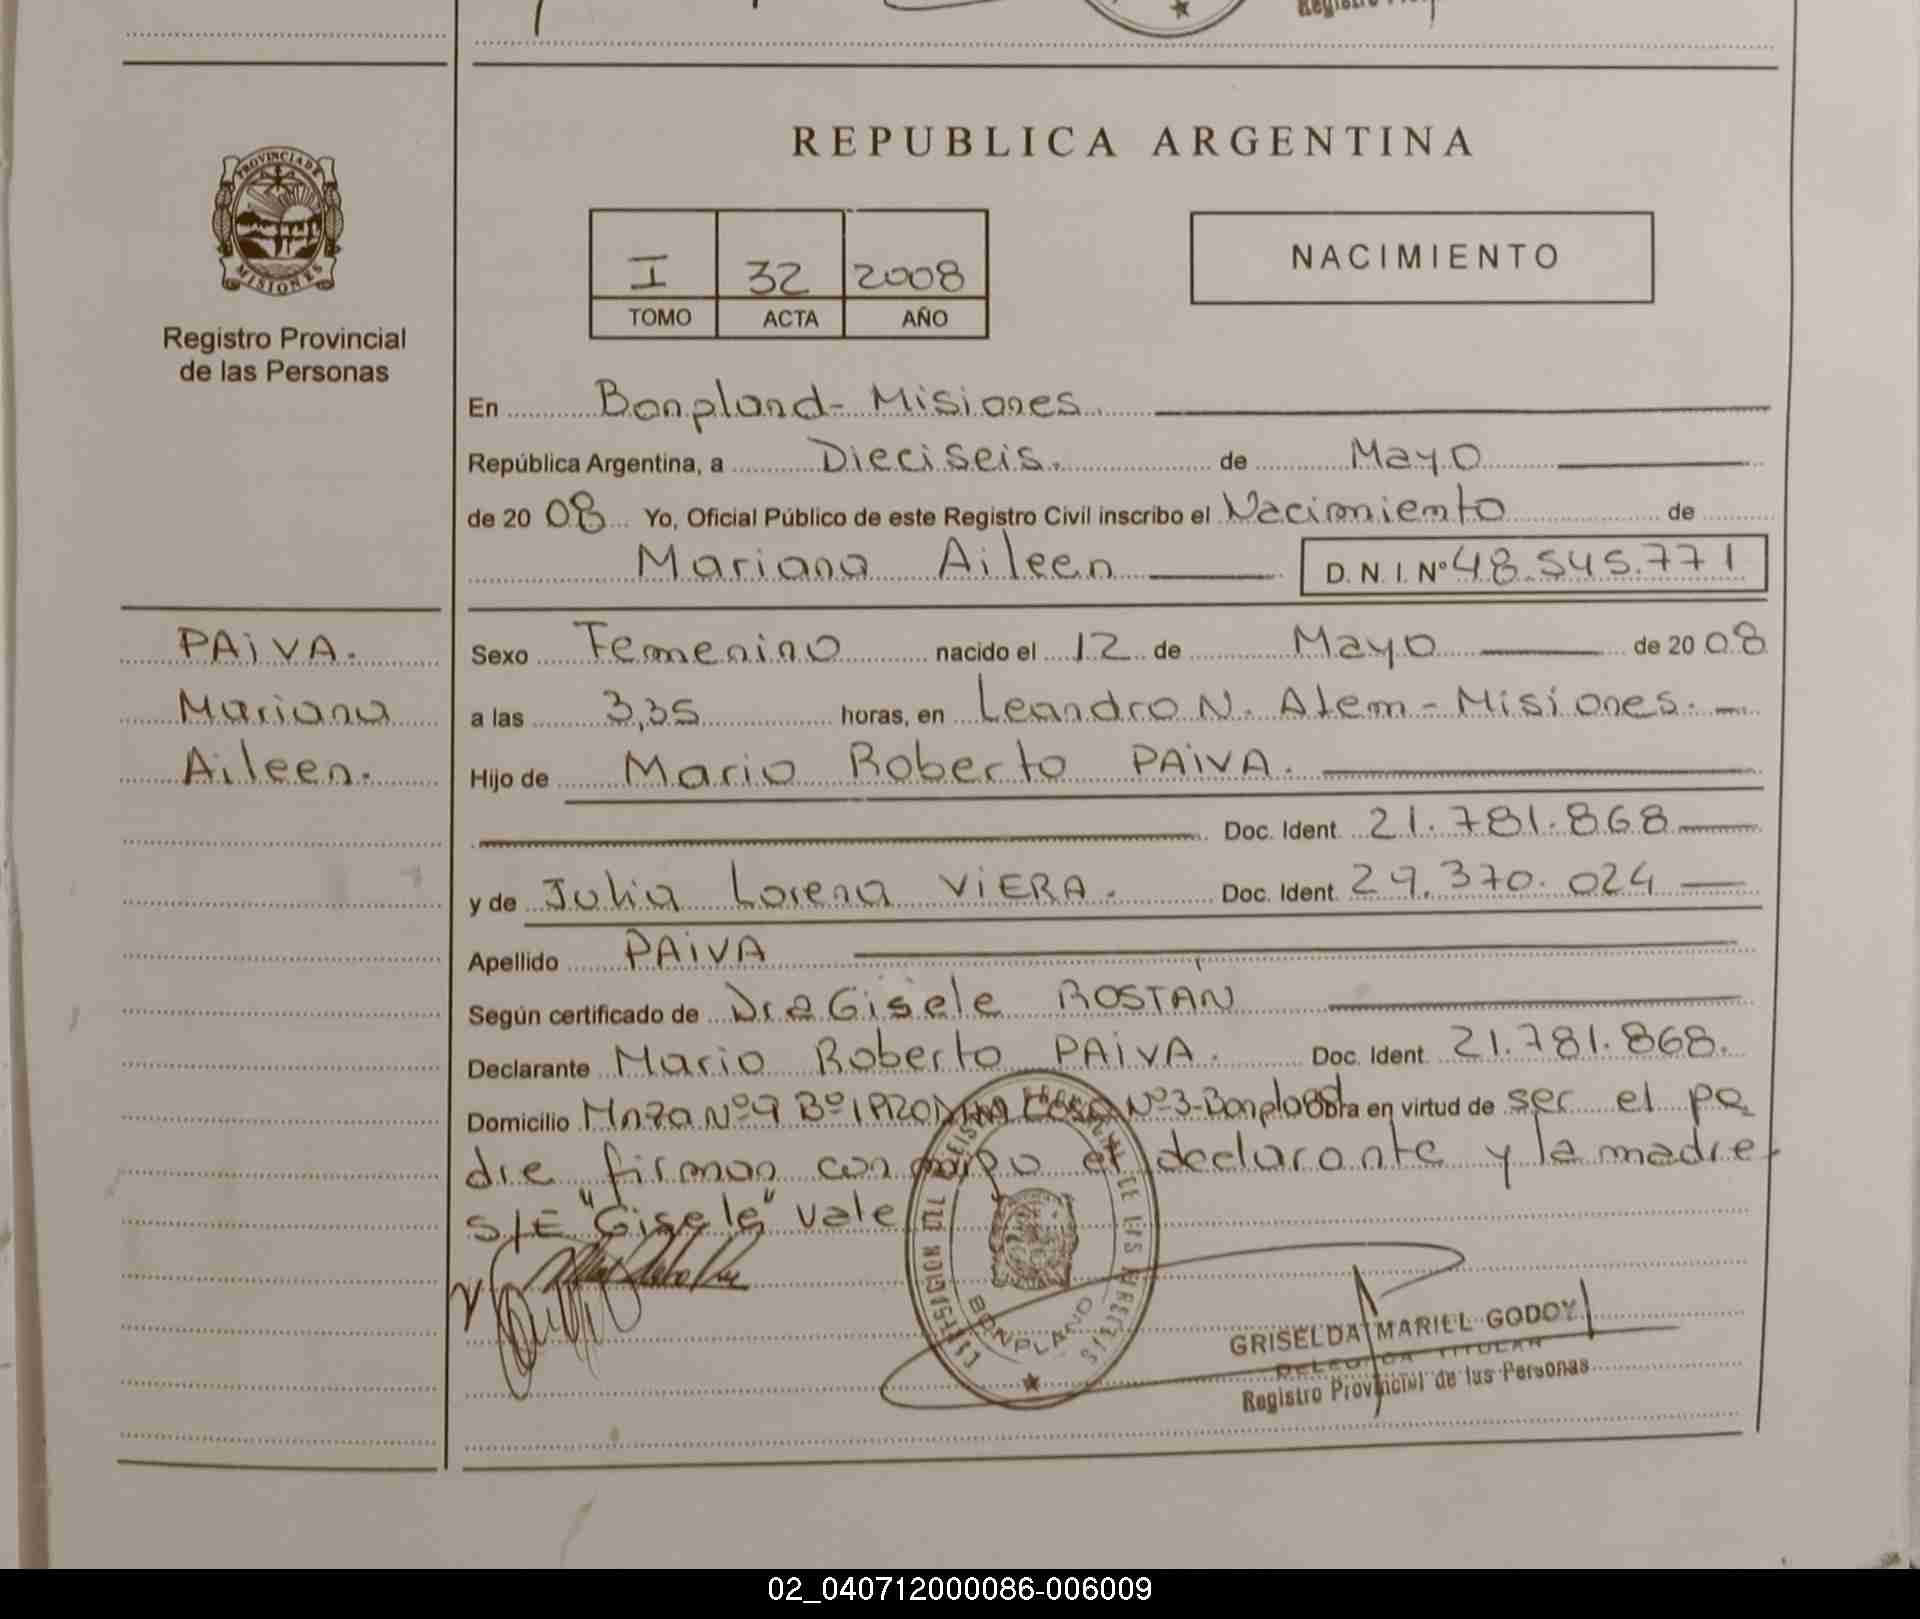 Registro
REPUBLICA ARGENTINA
PROVINCIA DE
MISIONES
Registro Provincial
de las Personas
I 32 2008
TOMO ACTA AÑO
NACIMIENTO
En Bonpland - Misiones
República Argentina, a Dieciseis. de Mayo
de 20 08 Yo, Oficial Público de este Registro Civil inscribo el Nacimiento de
Mariana Aileen D. N. I. Nº 48.545.771
PAIVA.
Mariana
Aileen.
Sexo Femenino nacido el 12 de Mayo de 20 08
a las 3,35 horas, en Leandro N. Alem - Misiones.
Hijo de Mario Roberto PAIVA.
Doc. Ident. 21.781.868
y de Julia Lorena VIERA. Doc. Ident. 29.370.024
Apellido PAIVA
Según certificado de Dra Gisele ROSTAN
Declarante Mario Roberto PAIVA. Doc. Ident. 21.781.868.
Domicilio Mnza Nº 9 Bº Casa Nº 3 - Bonpland Obra en virtud de ser el pa
dre firman con el declarante y la madre
S/E "Gisele" vale
BONPLAND
GRISELDA MARILL GODOY
DELEGADA TITULAR
Registro Provincial de las Personas
02_040712000086-006009